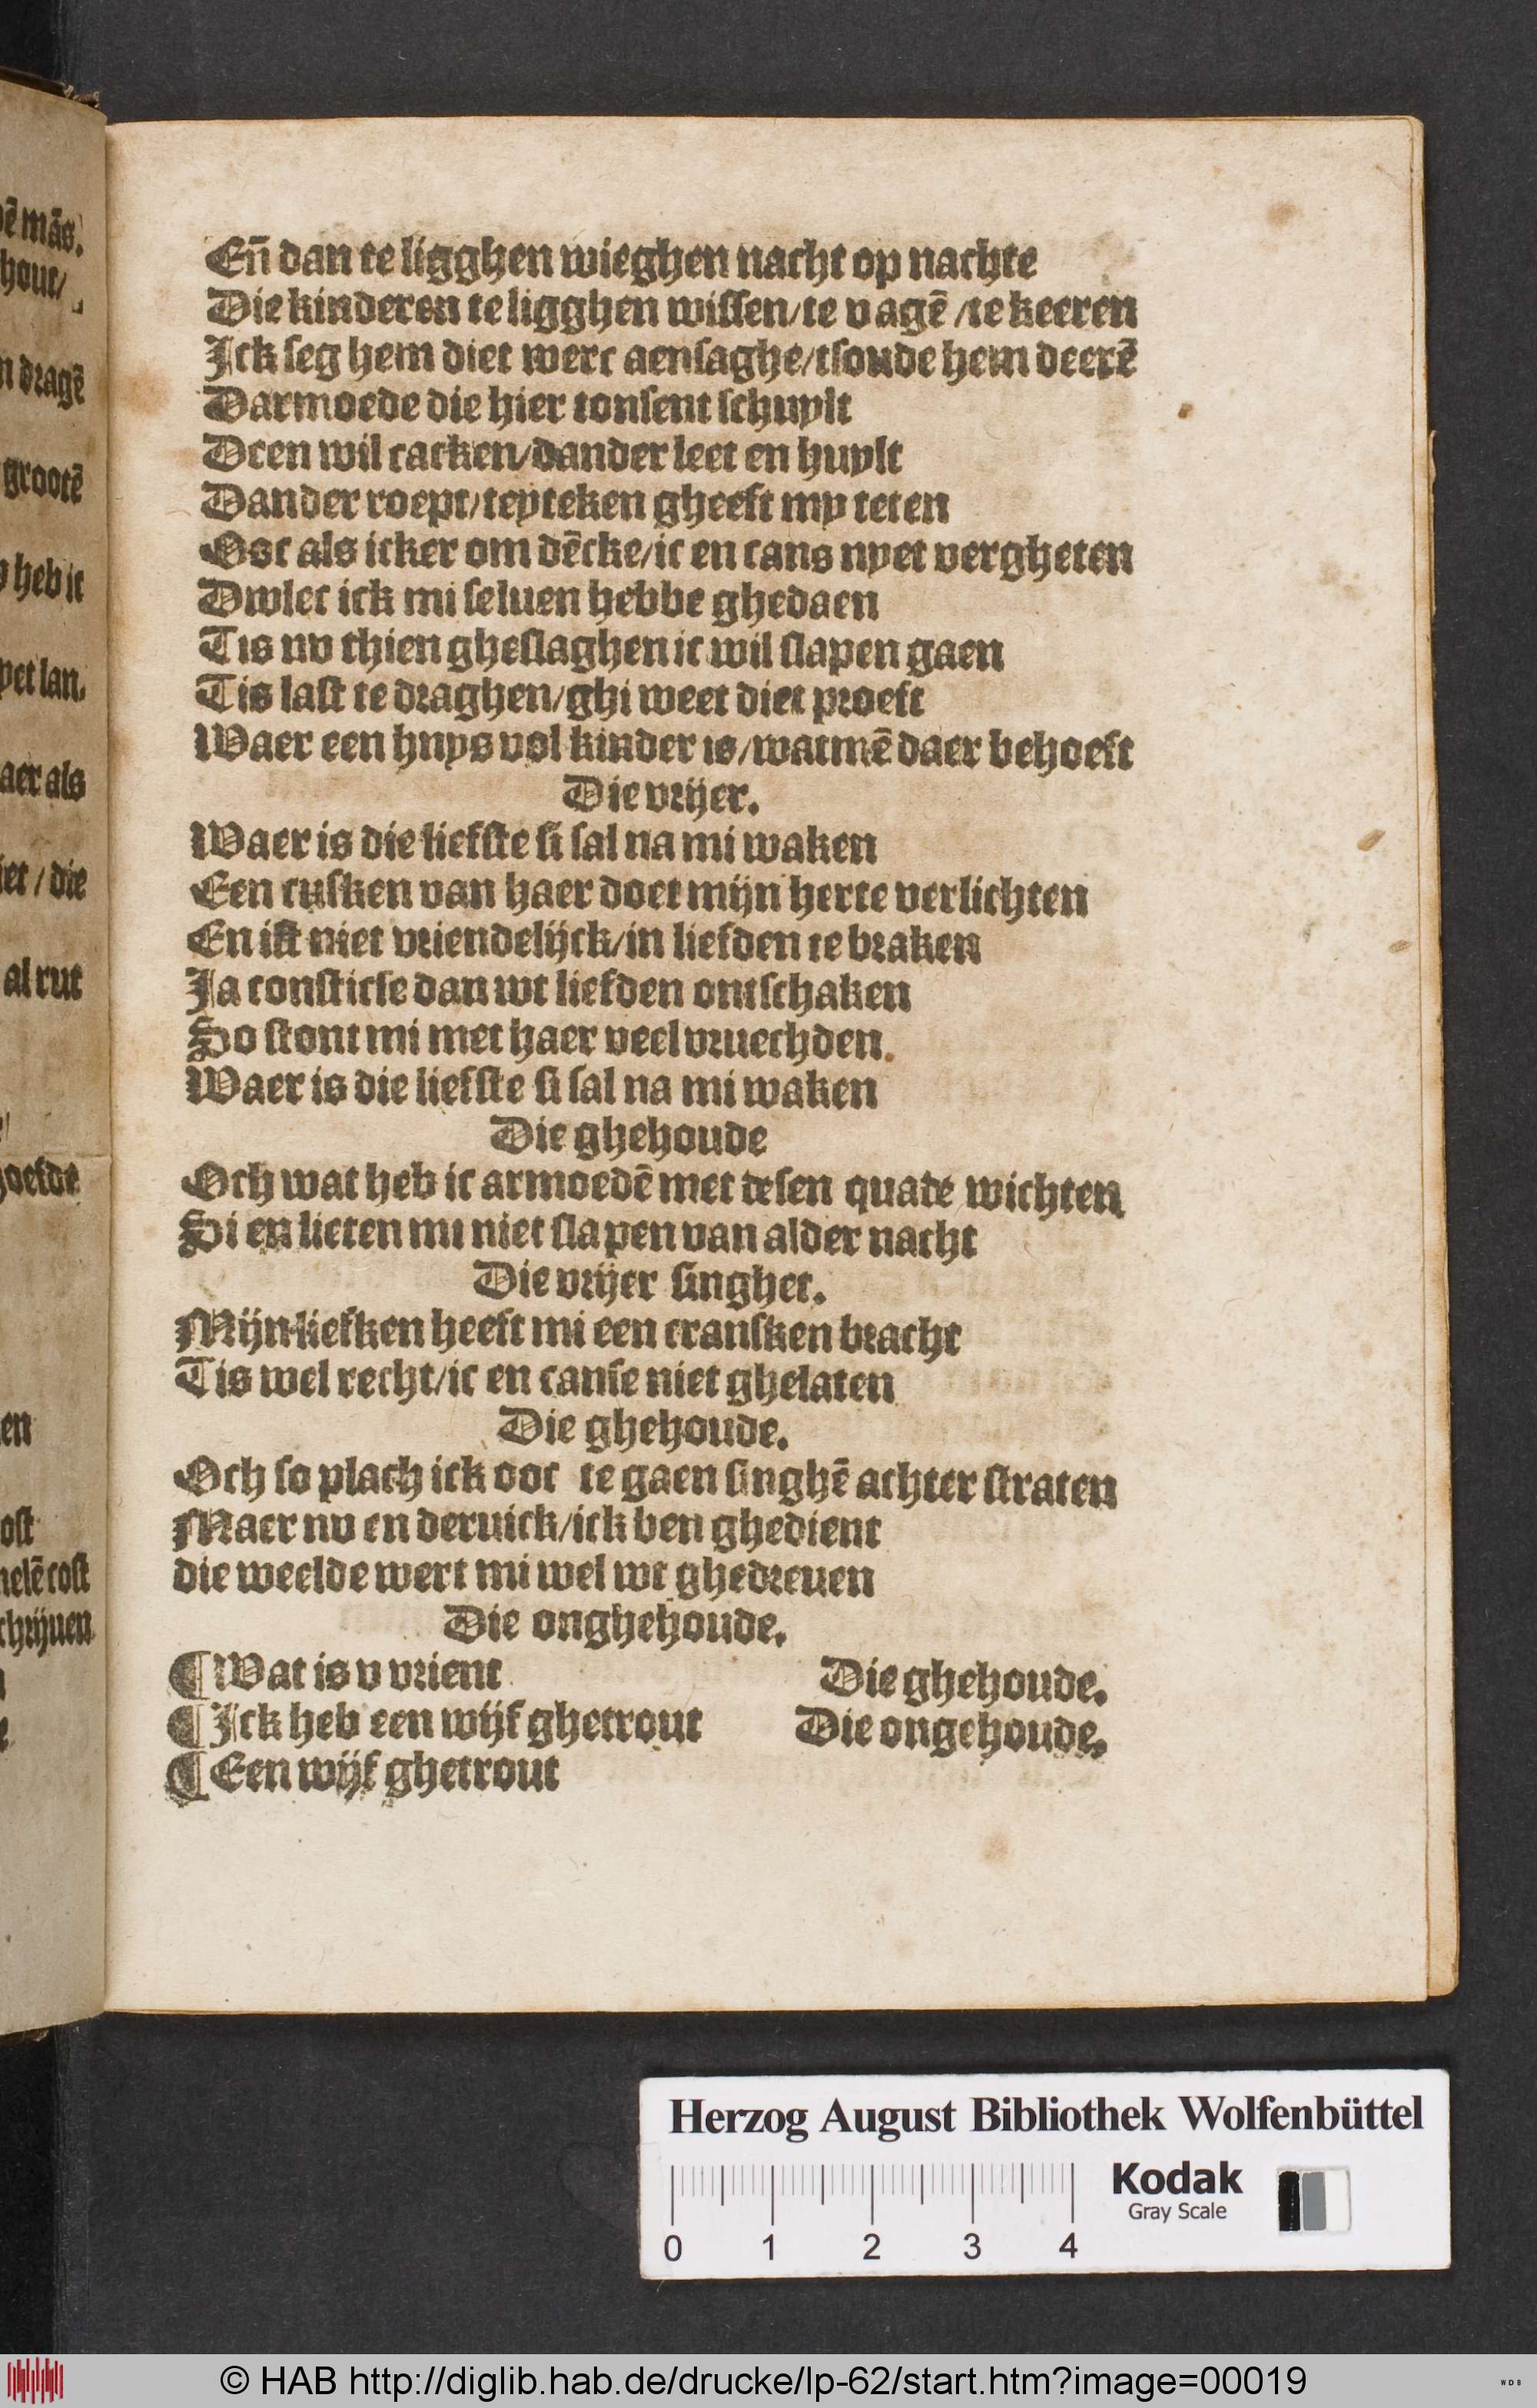 Eñ dan te ligghen wieghen nacht op nachte
Die kinderen te ligghen wissen/te vagē /te keeren
Ick seg hem diet werc aensaghe/tsoude hem deerē
Darmoede die hier tonsent schuylt
Deen wil cacken/dander leet en huylt
Dander roept/teyteken gheeft my teten
Ooc als icker om dēcke/ic en cans nyet vergheten
Dwlec ick mi seluen hebbe ghedaen
Tis nv thien gheslaghen ic wil slapen gaen
Tis last te draghen/ghi weet diet proeft
Waer een hnys vol kinder is/watmē daer behoeft
Die vrijer.
Waer is die liefste si sal na mi waken
Een cusken van haer doet mijn herte verlichten
En ist niet vriendelijck/in liefden te braken
Ja consticse dan wt liefden ontschaken
So stont mi met haer veel vruechden.
Waer is die liefste si sal na mi waken
Die ghehoude
Och wat heb ic armoedē met desen quade wichten
Si en lieten mi niet slapen van alder nacht
Die vrijer singhet.
Mijn liefken heeft mi een cransken bracht
Tis wel recht/ic en canse niet ghelaten
Die ghehoude.
Och so plach ick ooc te gaen singhē achter straten
Maer nv en deruick/ick ben ghedient
die weelde wert mi wel wt ghedreuen
Die onghehoude.
¶ Wat is v vrient Die ghehoude.
¶ Ick heb een wijf ghetrout Die ongehoude.
¶ Een wijf ghetrout
ē mās.
hout/
n dragē
grootē
heb ic
yet lan.
aer als
iet / die
al rut
hoefde
en
ost
cost
chrijuen
Herzog August Bibliothek Wolfenbüttel
Kodak
Gray Scale
0 1 2 3 4
© HAB http://diglib.hab.de/drucke/lp-62/start.htm?image=00019
WDB